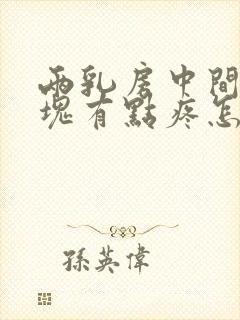 兩乳房中間
塊有點疼怎
孫英偉